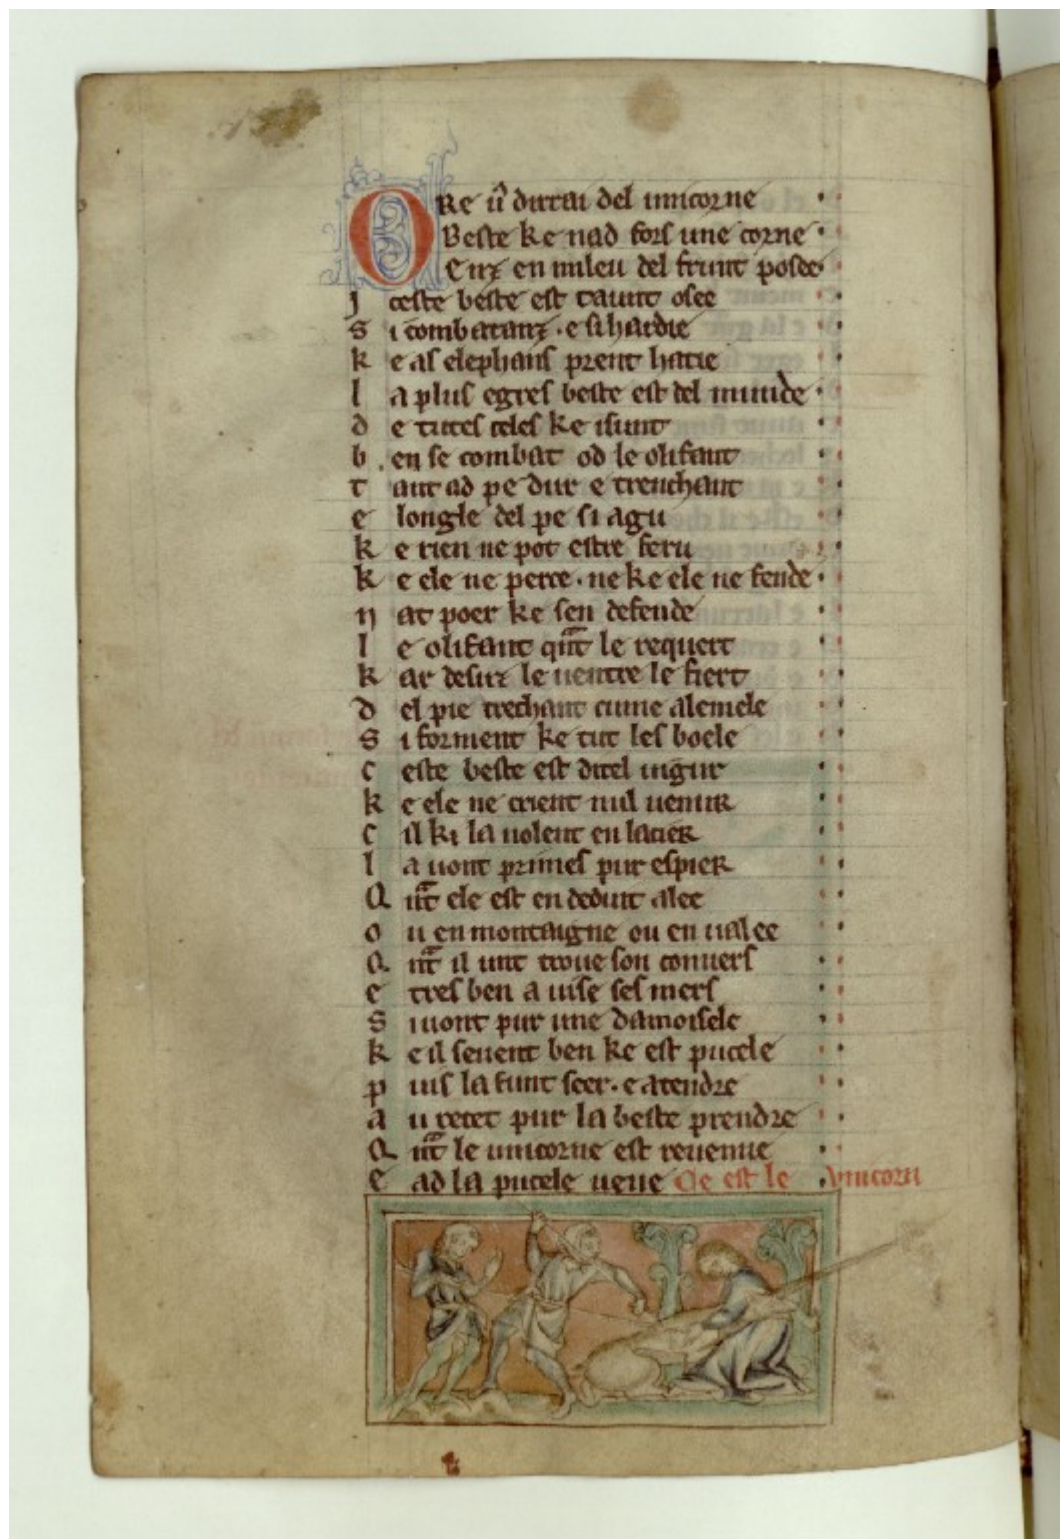 ORe v͛ dirrai del unicorne
Beste ke nad fors une corne
Enz en mileu del frunt posee
j ceste beste est taunt osee
s i combatanz · e si hardie
k e as elephans prent hatie
l a plus egres beste est del munde
d e tutes celes ke i sunt
b en se combat od le olifant
t ant ad pe dur e trenchant
e longle del pe si agu
k e rien ne pot estre feru
k e ele ne perce · ne ke ele ne fende
n at poer ke sen defende
l e olifant qᵃnt le requert
k ar desuz le uentre le fiert
d el pie trechant cume alemele
s i forment ke tut les boele
c este beste est ditel uigur
k e ele ne crient nul uenur
c il ki la uolent en lacier
l a uont primes pur espier
Q ᵃnt ele est en deduit alee
o u en montaigne ou en ualee
Q ᵃnt il unt troue son conuers
e tres ben a uise ses mers
s i uont pur une damoisele
k e il seuent ben ke est pucele
p uis la funt seer · e atendre
a u recet pur la beste prendre
Q ᵃnt le unicorne est reuenue
e ad la pucele ueue Ce est le vnicorn